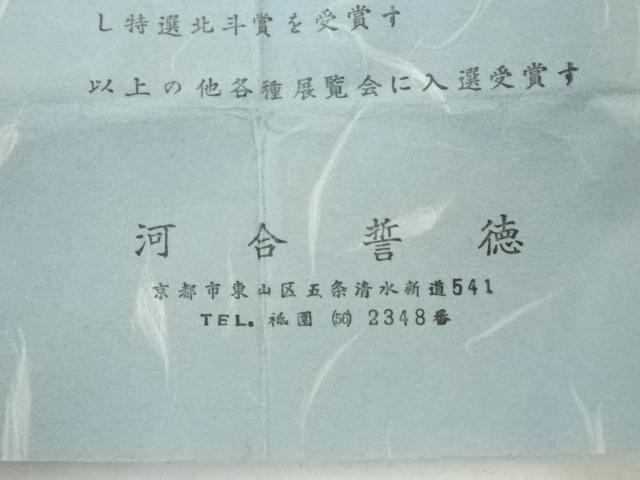 し特選北斗賞を受賞す
以上の他各種展覧会に入選受賞す
河合誓徳
京都市東山区五条清水新道541
TEL. 祗園 (56) 2348番